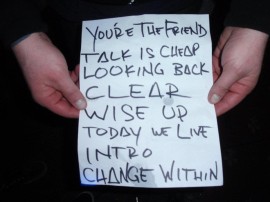 YOU'RE THE FRIEND
TALK IS CHEAP
LOOKING BACK
CLEAR
WISE UP
TODAY WE LIVE
INTRO
CHANGE WITHIN